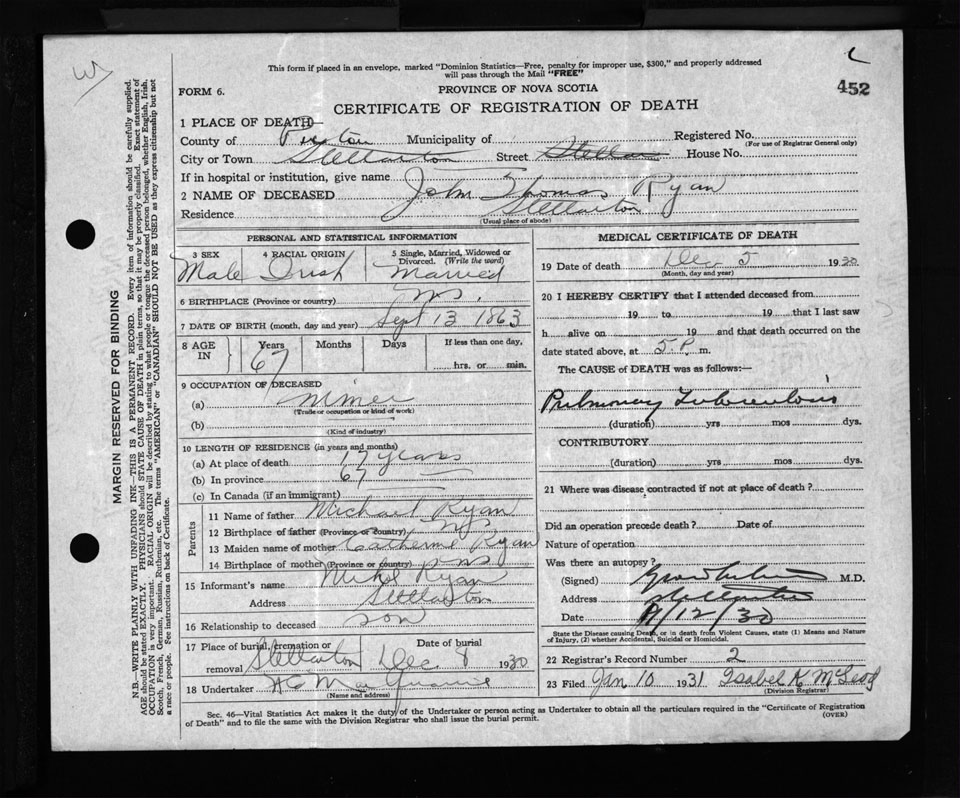 W
C
This form if placed in an envelope, marked "Dominion Statistics—Free, penalty for improper use, $300," and properly addressed
will pass through the Mail "FREE"
452
FORM 6.
PROVINCE OF NOVA SCOTIA
CERTIFICATE OF REGISTRATION OF DEATH
1 PLACE OF DEATH—
County of Pictou Municipality of Registered No.
(For use of Registrar General only)
City or Town Stellarton Street House No.
If in hospital or institution, give name
2 NAME OF DECEASED John Thomas Ryan
Residence Stellarton
(Usual place of abode)
PERSONAL AND STATISTICAL INFORMATION
3 SEX 4 RACIAL ORIGIN 5 Single, Married, Widowed or
Divorced. (Write the word)
Male Irish Married
6 BIRTHPLACE (Province or country) N.S.
7 DATE OF BIRTH (month, day and year) Sept 13 1863
8 AGE IN Years Months Days If less than one day,
67 hrs. or min.
9 OCCUPATION OF DECEASED
(a) Miner
(Trade or occupation or kind of work)
(b)
(Kind of industry)
10 LENGTH OF RESIDENCE (in years and months)
(a) At place of death years
(b) In province 67
(c) In Canada (if an immigrant)
Parents
11 Name of father Michael Ryan
12 Birthplace of father (Province or country) NS
13 Maiden name of mother Catherine Ryan
14 Birthplace of mother (Province or country) NS
15 Informant's name Ryan
Address Stellarton
16 Relationship to deceased son
17 Place of burial, cremation or removal Stellarton Date of burial Dec 8 1930
18 Undertaker
(Name and address)
MEDICAL CERTIFICATE OF DEATH
19 Date of death Dec 5 1930
(Month, day and year)
20 I HEREBY CERTIFY that I attended deceased from
19 to 19 that I last saw
h alive on 19 and that death occurred on the
date stated above, at 5 P. m.
The CAUSE of DEATH was as follows:—
Pulmonary Tuberculosis
(duration) yrs mos dys.
CONTRIBUTORY
(duration) yrs mos dys.
21 Where was disease contracted if not at place of death ?
Did an operation precede death ? Date of
Nature of operation
Was there an autopsy ?
(Signed) M.D.
Address Stellarton
Date /12/30
State the Disease causing Death, or in death from Violent Causes, state (1) Means and Nature
of Injury, (2) whether Accidental, Suicidal or Homicidal.
22 Registrar's Record Number 2
23 Filed Jan 10 1931 Isabel K McLeod
(Division Registrar)
Sec. 46—Vital Statistics Act makes it the duty of the Undertaker or person acting as Undertaker to obtain all the particulars required in the "Certificate of Registration
of Death" and to file the same with the Division Registrar who shall issue the burial permit.
(OVER)
MARGIN RESERVED FOR BINDING
N.B.—WRITE PLAINLY WITH UNFADING INK—THIS IS A PERMANENT RECORD. Every item of information should be carefully supplied.
AGE should be stated EXACTLY. PHYSICIANS should STATE CAUSE OF DEATH in plain terms, so that it may be properly classified. Exact statement of
OCCUPATION is very important. RACIAL ORIGIN will be described by stating to what people or tongue the deceased person belonged, whether English, Irish,
Scotch, French, German, Russian, Ruthenian, etc. The terms "AMERICAN" or "CANADIAN" SHOULD NOT BE USED as they express citizenship but not
a race or people. See instructions on back of Certificate.